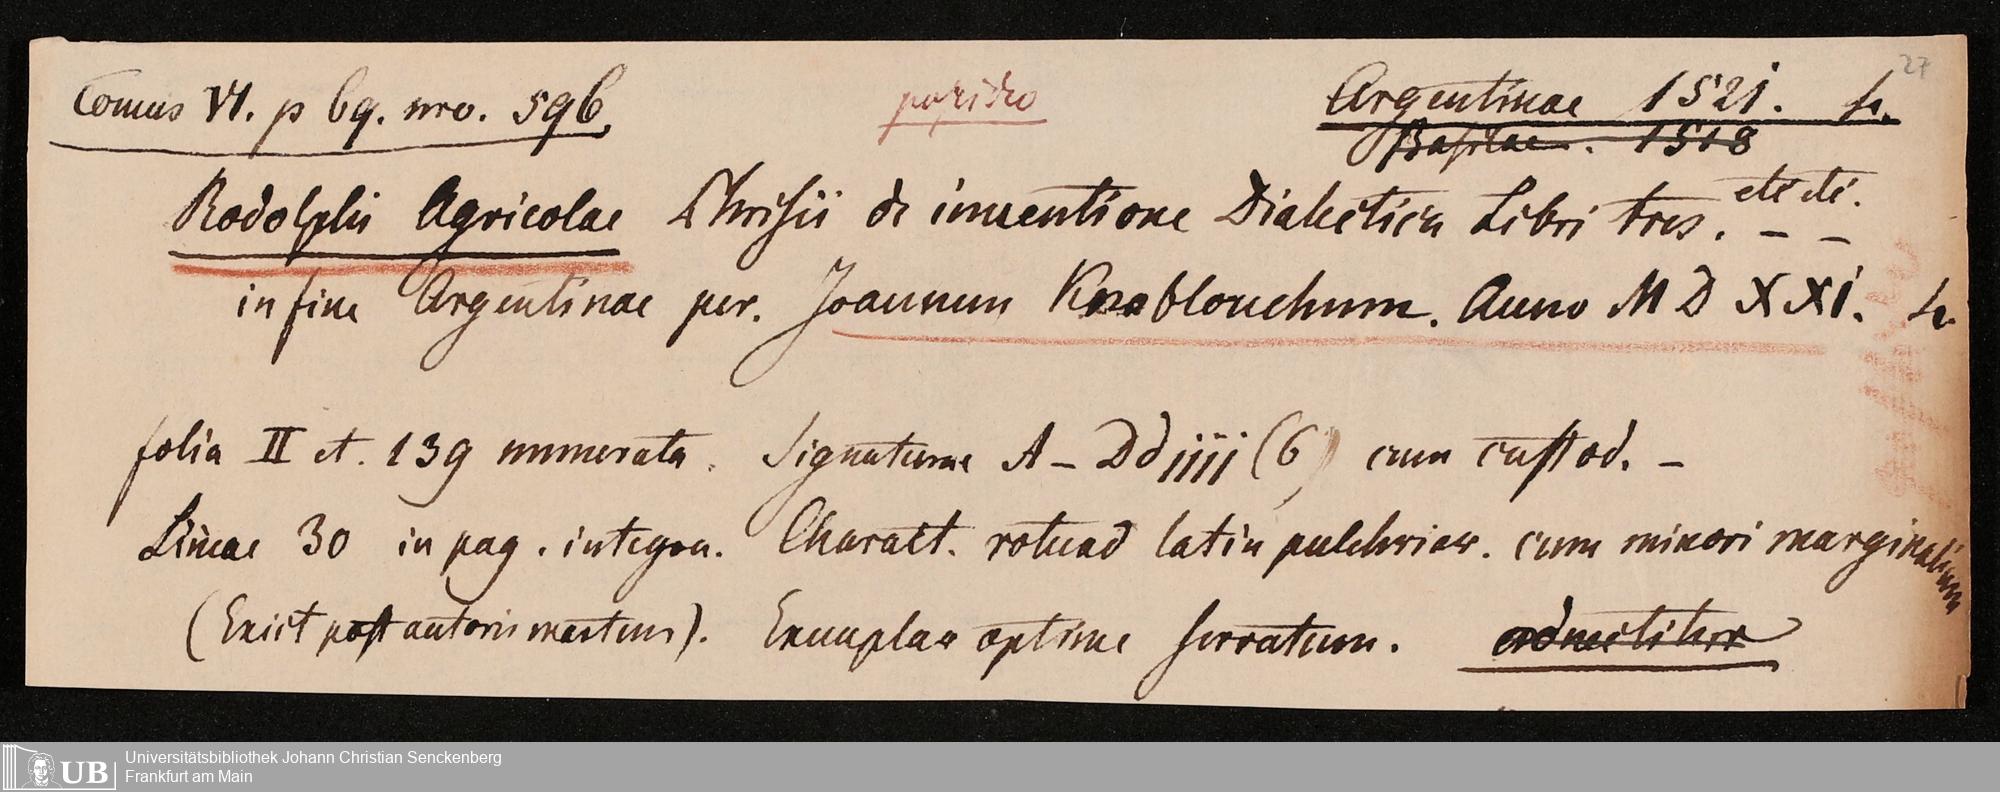 Tomus VI. p 69. nro. 596. Argentinae 1521. 4. 27
Basileae. 1518
Rodolphi Agricolae Phrisii de inventione Dialectica Libri tres. etc etc. – –
in fine Argentinae per. Joannem Knoblouchum. Anno M D XXI. 4.
folia II et. 139 numerata. Signaturae A – Dd iiii (6) cum custod. –
Lineae 30 in pag. integra. Charact. rotund latin pulchrior. cum minori marginalium
(Exiit post autoris mortem). Exemplar optime servatum.
Universitätsbibliothek Johann Christian Senckenberg
Frankfurt am Main
UB